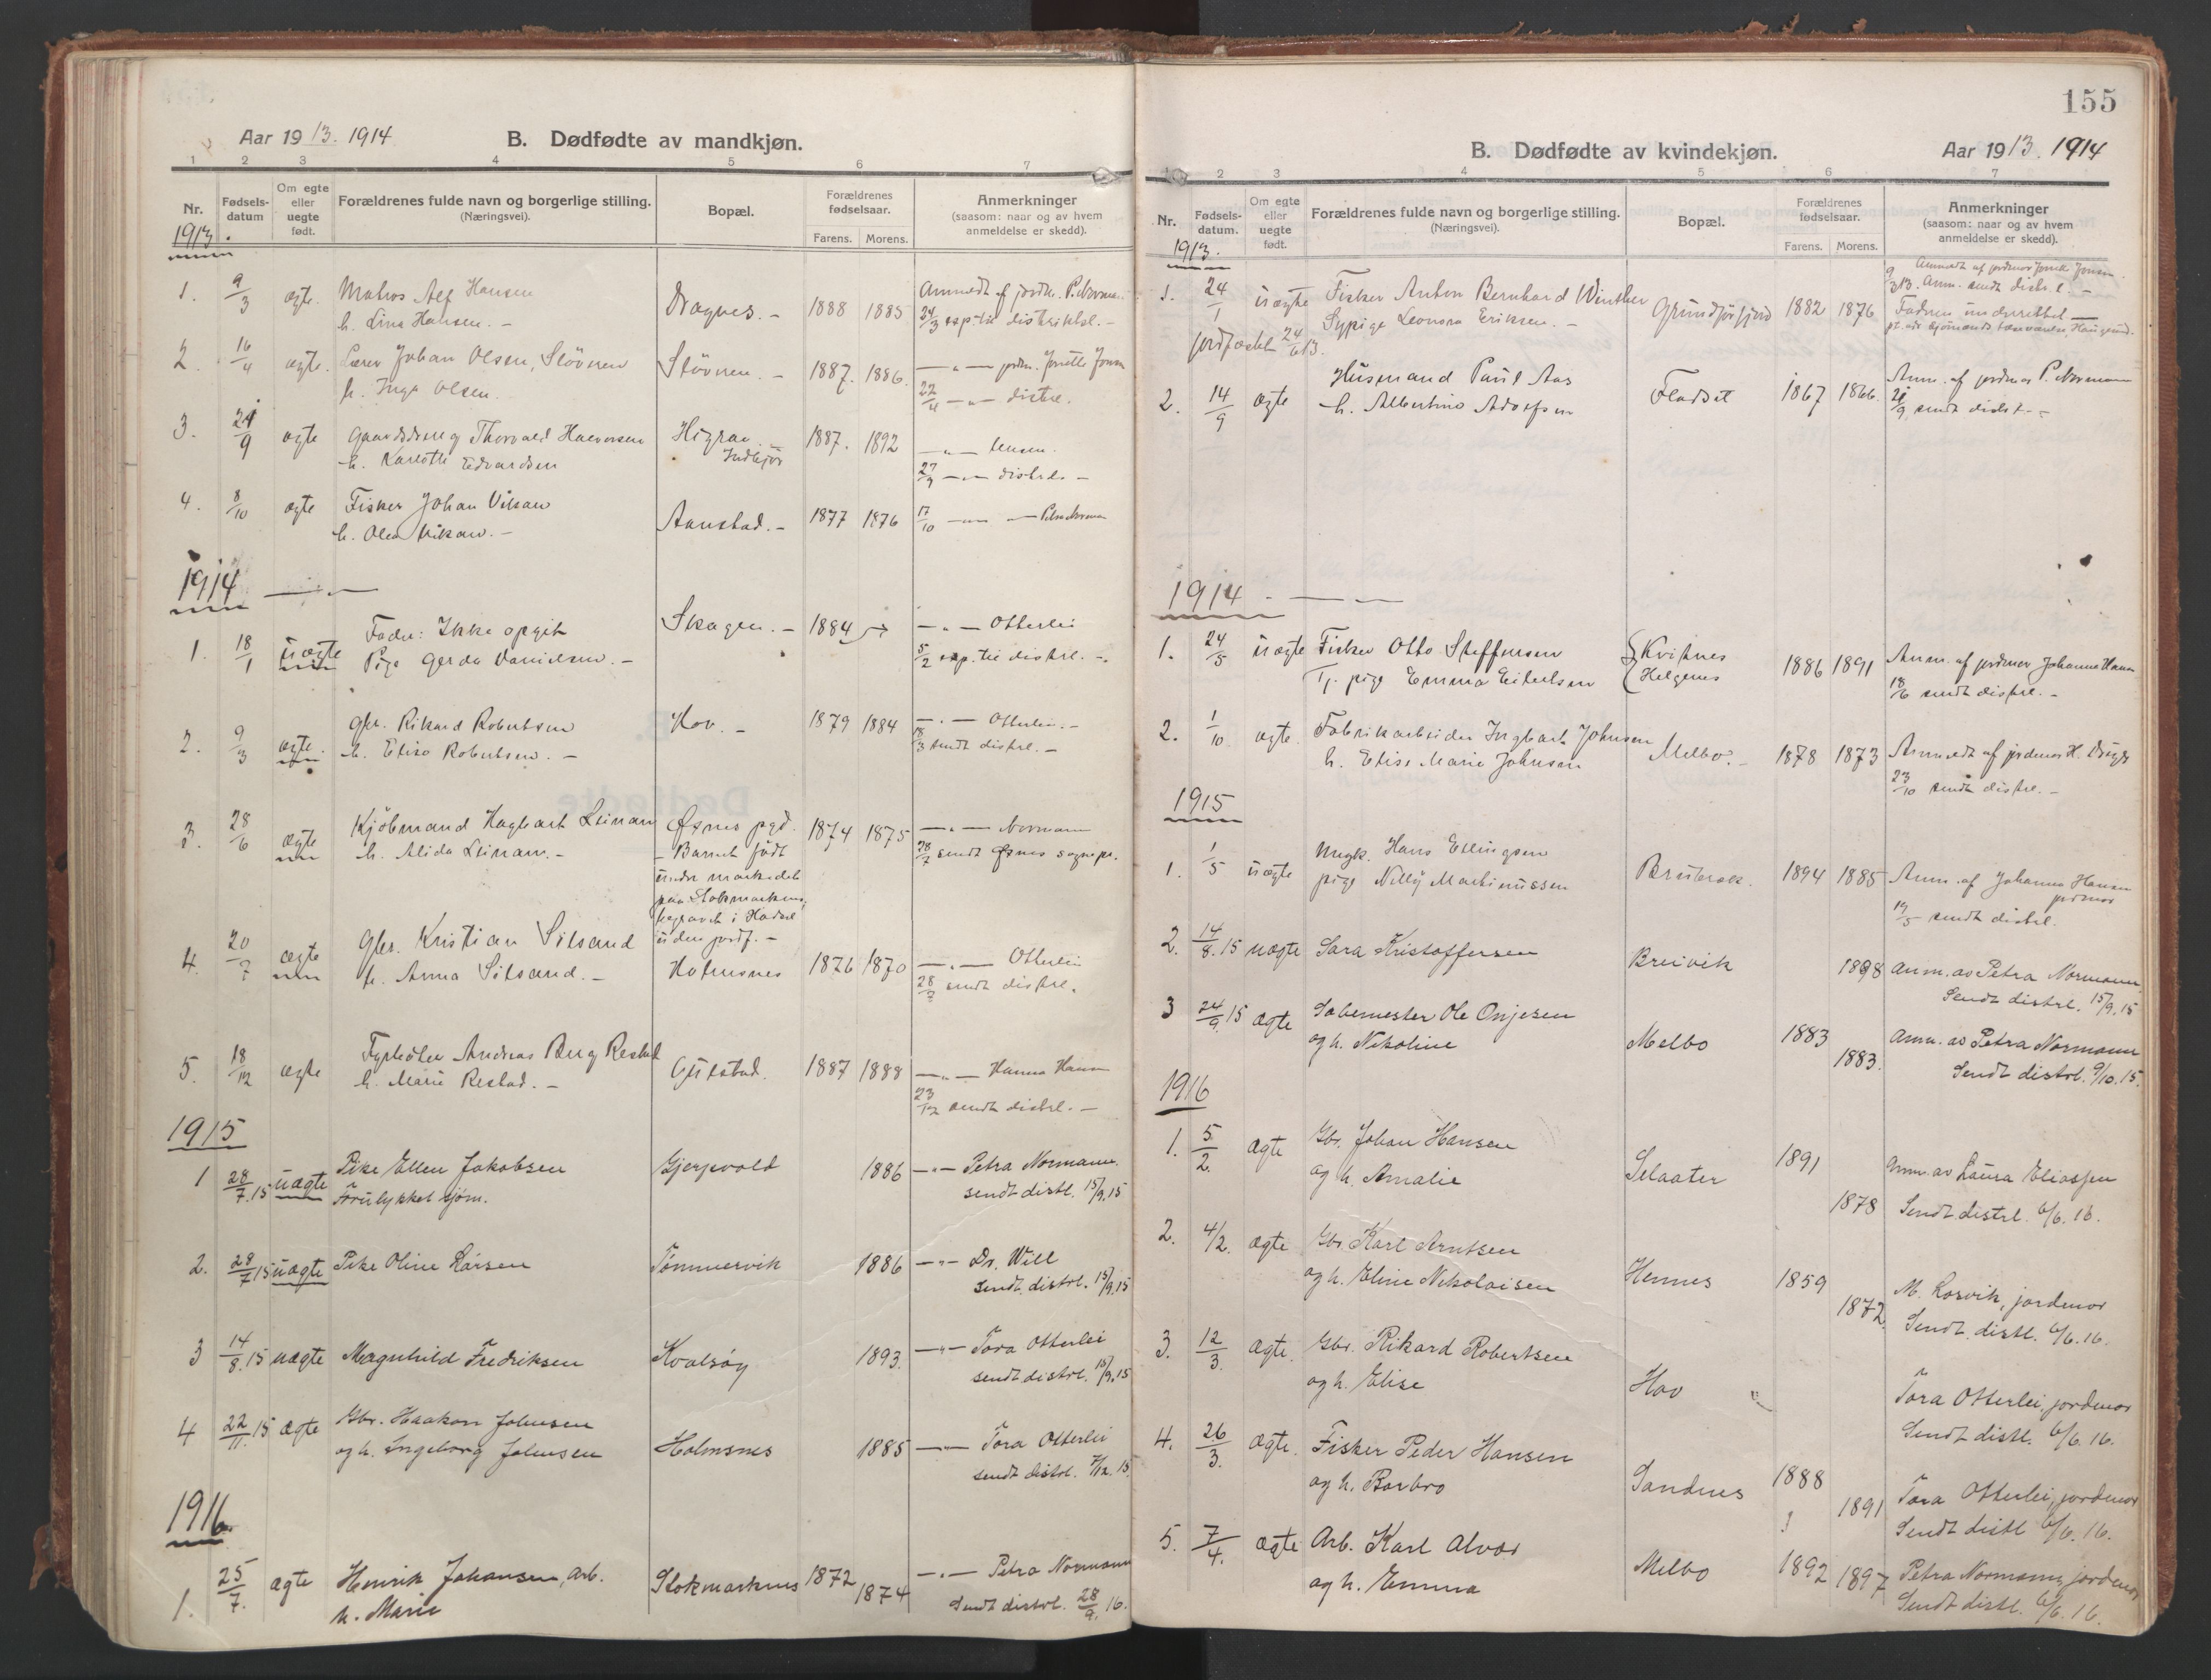 Aar 1913. 1914
B. Dødfødte av mandkjøn.
1 2 3 4 5 6 7
Nr.
Fødsels-
datum
Om egte
eller
uegte
født.
Forældrenes fulde navn og borgerlige stilling.
(Næringsvei).
Bopæl.
Forældrenes
fødselsaar.
Farens. Morens.
Anmerkninger
(saasom: naar og av hvem
anmeldelse er skedd).
1913.
1. 9/3 ægte. Matros Alf Hansen
h. Lina Hansen. – Dragnes. – 1888 1885 Anmeldt af jordm. P. Normann
24/3 exp. til distriktsl. –
2. 16/4 ægte. Lærer Johan Olsen, Stövnen
h. Inga Olsen. Stövnen. – 1887. 1886. – " – jordm. Jonsen
22/4 – " – distrl.
3. 21/9 ægte Gaardsdreng Thorvald Halvorsen
h. Karlotte Edvardsen Higrav 1887. 1892 – " – Jensen.
27/9 – " – distrl. –
4. 8/10 ægte Fisker Johan Vikan
h. Olea Vikan. – Aanstad. – 1877 1876 17/10 – " – Petra Normann
1914
1. 18/1 uægte Fader: Ikke opgit
Pige Gerda Danielsen. – Skagen. – 1884 – " – Otterlei
5/2 exp. til distrl. –
2. 9/3 ægte. Gbr. Rikard Robertsen
h. Elise Robertsen. – Hov. – 1879 1884 – " – Otterlei. –
18/3 sendt distrl. –
3. 28/6 ægte Kjöbmand Hagbart Leinan
h. Alida Leinan. – Øsnes pgd. 1874 1875 – " – Normann
28/7 sendt Øsnes sognepr.
– Barnet födt
under markedet
paa Stokmarknes,
begravet i Hadsel
uden jordf. –
4. 20/7 ægte Gbr. Kristian Silsand
h. Anna Silsand. – Holmsnes 1876 1870 – " – Otterlei
28/7 sendt distrl.
5. 18/12 ægte Fyrböter Andreas Berg Restad
h. Marie Restad. – Gulstad. 1887 1888 – " – Hanna Hansen
23/12 sendt distrl. –
1915
1 28/7.15 uægte Pike Ellen Jakobsen
Forulykket sjøm. Gjerpvold 1886 – " – Petra Normann.
sendt distl. 15/9.15
2. 28/7 15 uægte Pike Oline Larsen Tömmervik 1886 – " – Dr. Will
sendt distrl. 15/9.15
3 14/8.15 uægte Magnhild Fredriksen Kvalsöy 1893. – " – Tora Otterlei
sendt distrl. 15/9.15
4 22/11.15 ægte Gbr. Haakon Johnsen
og h. Ingeborg Johnsen Holmsnes 1885 – " – Tora Otterlei
sendt distrl. 7/12.15
1916.
1. 25/7. ægte Henrik Johansen, Arb.
h. Marie Stokmarknes 1872 1874 – " – Petra Normann
Sendt distrl. 28/9. 16.
155
B. Dødfødte av kvindekjøn.
Aar 1913. 1914
1 2 3 4 5 6 7
Nr.
Fødsels-
datum.
Om egte
eller
uegte
født.
Forældrenes fulde navn og borgerlige stilling.
(Næringsvei).
Bopæl.
Forældrenes
fødselsaar.
Farens. Morens.
Anmerkninger
(saasom: naar og av hvem
anmeldelse er skedd).
1913.
1. 24/1 uægte Fisker Anton Bernhard Winther
Sypige Leonora Eriksen. – Grundförfjord 1882 1876 Anmeldt af jordmor Jonsen
9/3 13. Anm. sendt distr. l. –
Faderen underrettet –
jordfæstet 24/6 13.
2. 14/9 ægte Husmand Paul Aas
h. Albertine Adolfsen Fladset 1867 1866. Anm. af jordmor P. Normann
21/9 sendt distrl. –
1914
1. 24/5 uægte Fisker Otto Steffensen
Tj. pige Emma Eilertsen Kvitnes
Helgenes 1886 1891 Anm. af jordmor Johanna Hansen
18/6 sendt distrl. –
2. 1/10 ægte. Fabrikarbeider Ingbart Johnsen
h. Elise Marie Johnsen Melbo. – 1878 1873 Anmeldt af jordmor H.
23/10 sendt distrl. –
1915
1. 1/5 uægte Ungk. Hans Ellingsen
pige Nelly Martinussen 1894 1885 Anm. af Johanna Hansen
jordmor
19/5 sendt distrl.
2. 14/8.15 uægte Sara Kristoffersen Breivik 1898 Anm. av Petra Normann
Sendt distrl. 15/9.15
3 24/9.15 ægte Sabemester Ole Onjesen
og h. Nikoline Melbo 1883 1883. Anm. av Petra Normann
Sendt distrl. 9/10.15.
1916
1. 5/2. ægte Gbr. Johan Hansen
og h. Amalie Selaater 1891 1878 Anm. av Laura Eliassen
Sendt distrl. 6/6.16.
2. 4/2. ægte Gbr. Karl Arntsen
og h. Eline Nikolaisen Hennes 1859 1872. M. Lorvik, jordmor
Sendt distl. 6/6.16.
3. 12/3. ægte. Gbr. Rikard Robertsen
og h. Elise Hov " Tora Otterlei, jordmor
Sendt distl. 6/6.16.
4. 26/3. ægte. Fisker Peder Hansen
og h. Barbro Sandnes 1888 1891 Tora Otterlei, jordmor
Sendt distl 6/6.16.
5. 7/4. ægte Arb. Karl Alvar
og h. Emma Melbo 1892 1897 Petra Normann, jordmor
Sendt distl. 6/6.16.